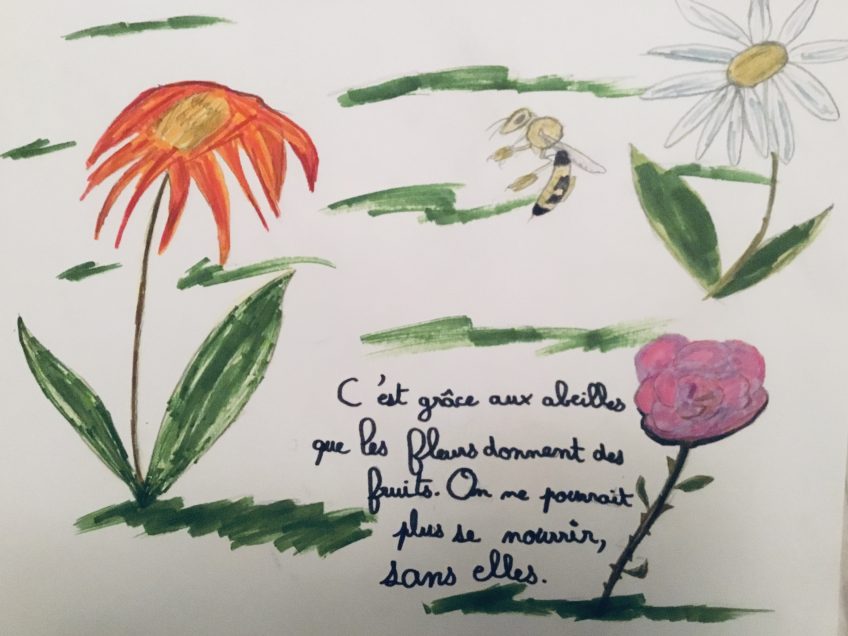 C'est grâce aux abeilles
que les fleurs donnent des
fruits. On ne pourrait
plus se nourrir,
sans elles.